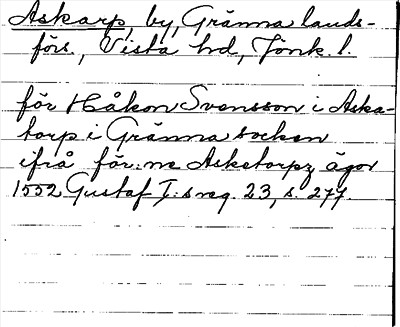 Askarp, by, Gränna lands-
förs., Vista hd, Jönk. l.
för Håkon Svensson i Aska-
torp i Gränna socken
ifrå för:ne Asketorpz ägor
1552 Gustaf I:s reg. 23, s. 277.